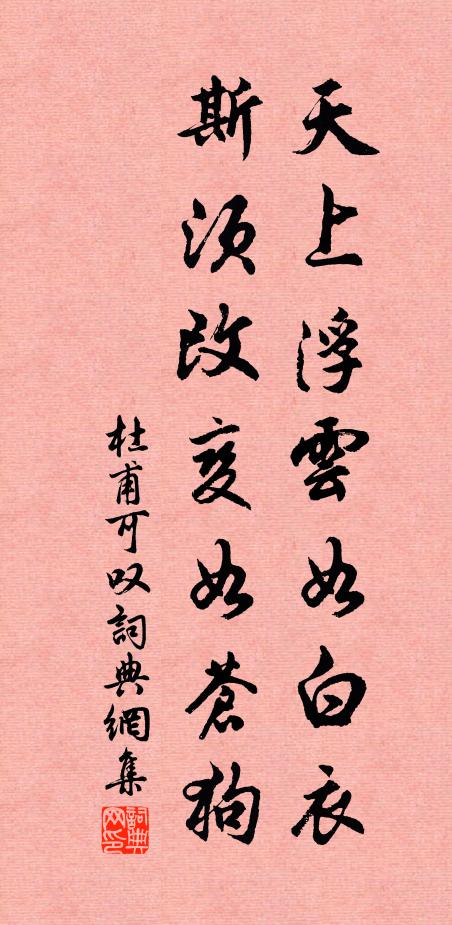 天上浮雲如白衣
斯須改变如蒼狗
杜甫可叹詞典網集
詞典网印